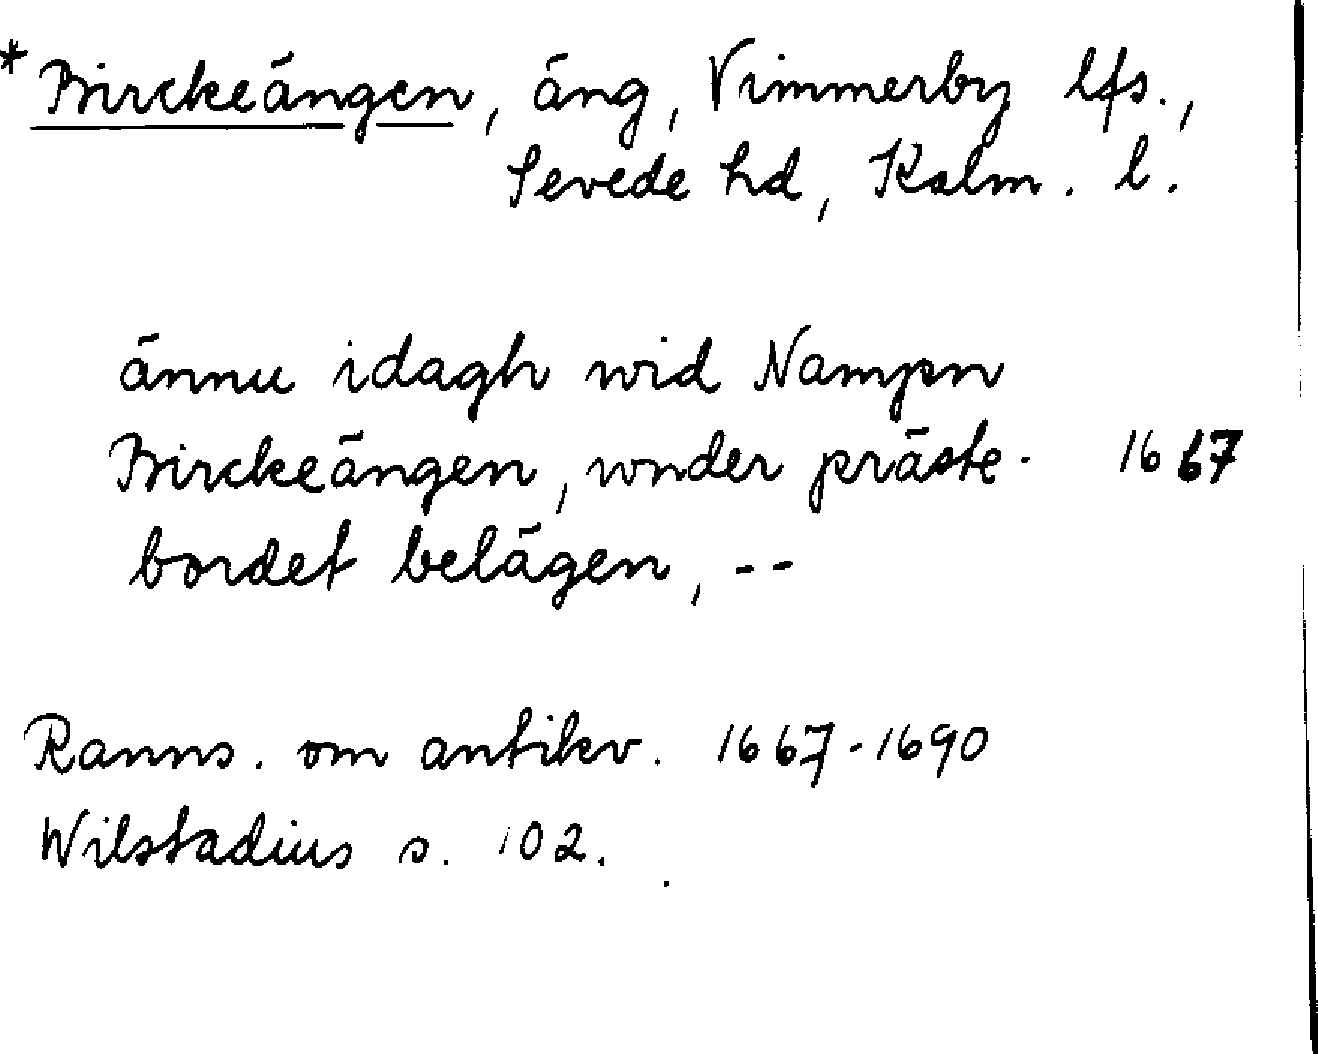 *Birckeängen, äng, Vimmerby lfs.,
Sevede hd, Kalm. l.
ännu idagh wid Nampn
Birckeängen, wnder präste- 1667
bordet belägen, --
Ranns. om antikv. 1667-1690
Wilstadius s. 102.